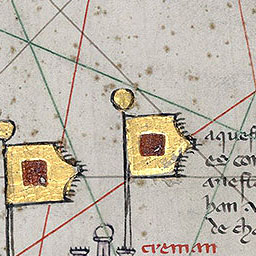 aquest
es con
aquest
han a
de cha
creman